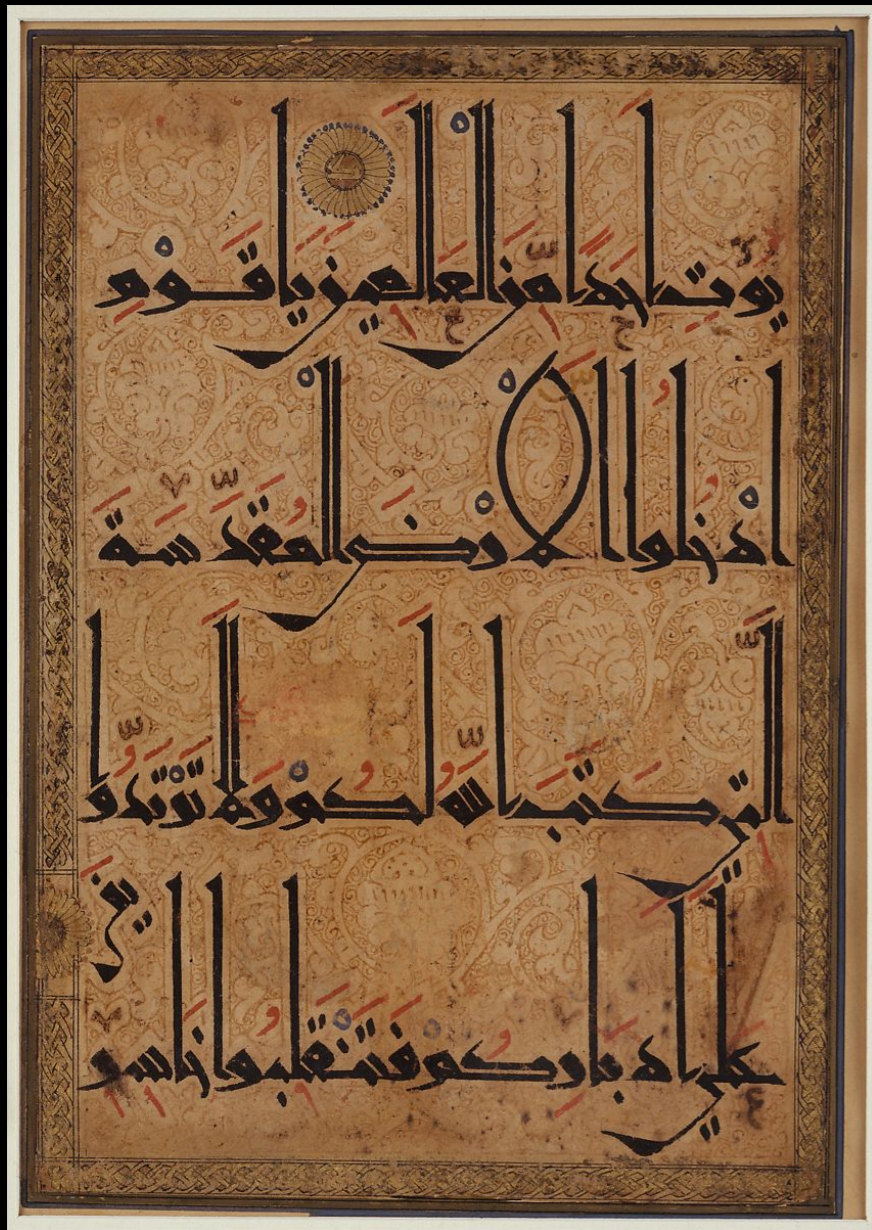 يُؤْتِ أَحَدًا مِّنَ الْعَالَمِينَ يَا قَوْمِ
ادْخُلُوا الْأَرْضَ الْمُقَدَّسَةَ
الَّتِي كَتَبَ اللَّهُ لَكُمْ وَلَا تَرْتَدُّوا
عَلَى أَدْبَارِكُمْ فَتَنقَلِبُوا خَاسِرِينَ